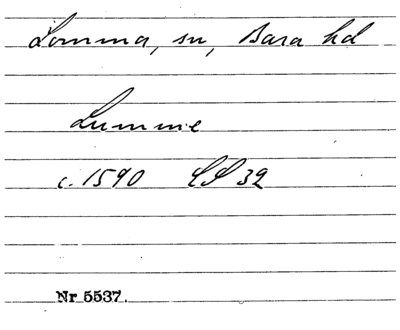 Lomma, sn, Bara hd
Lumme
c. 1590 LS 32
Nr 5537.